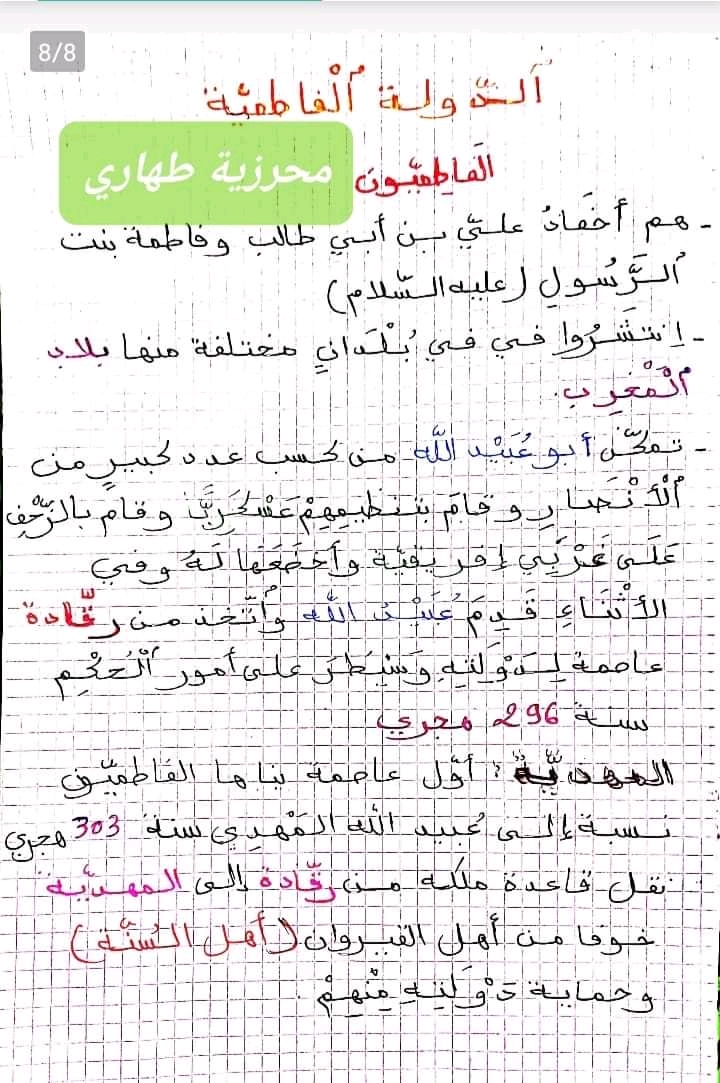 8/8
اَلدَّولة اَلْفاطميَّة
الفَاطِمِيُّون
محرزية طهاري
- هم أحْفَادُ عليّ بن أبي طالب وفاطمة بنت
اَلرَّسُولِ (عليه السّلام)
- اِنتَشَرُوا في في بُلْدَانٍ مختلفة منها بلاد
اَلْمَغْرِبِ.
- تمكّنَ أبو عُبَيْد اللَّه من كسب عدد كبيرٍ من
اَلْأَنْصَارِ وقامَ بتنظيمِهِمْ عَسْكَرِيًّا وقام بالزَّحْفِ
عَلَى غَرْبَي إفريقيّة وأخضَعَهَا لَهُ وفي
الأثْنَاءِ قَدِمَ عُبَيْدُ اللَّه واُتّخذ من رقّادة
عاصمة لِدَوْلَتِهِ وَسَيْطَرَ على أمور اَلْحُكْمِ
سنة 296 هجري
المهديّة: أوّل عاصمة بناها الفَاطميّون
نسبة إلى عُبيد اللّه المَهْدِي سنة 303 هجري
نقل قاعدة ملكه من رقّادة إلى المهديّة
خوفا من أهل القيروان (أهل السُنَّة)
وحماية دَوْلَتِهِ مِنْهِمْ.